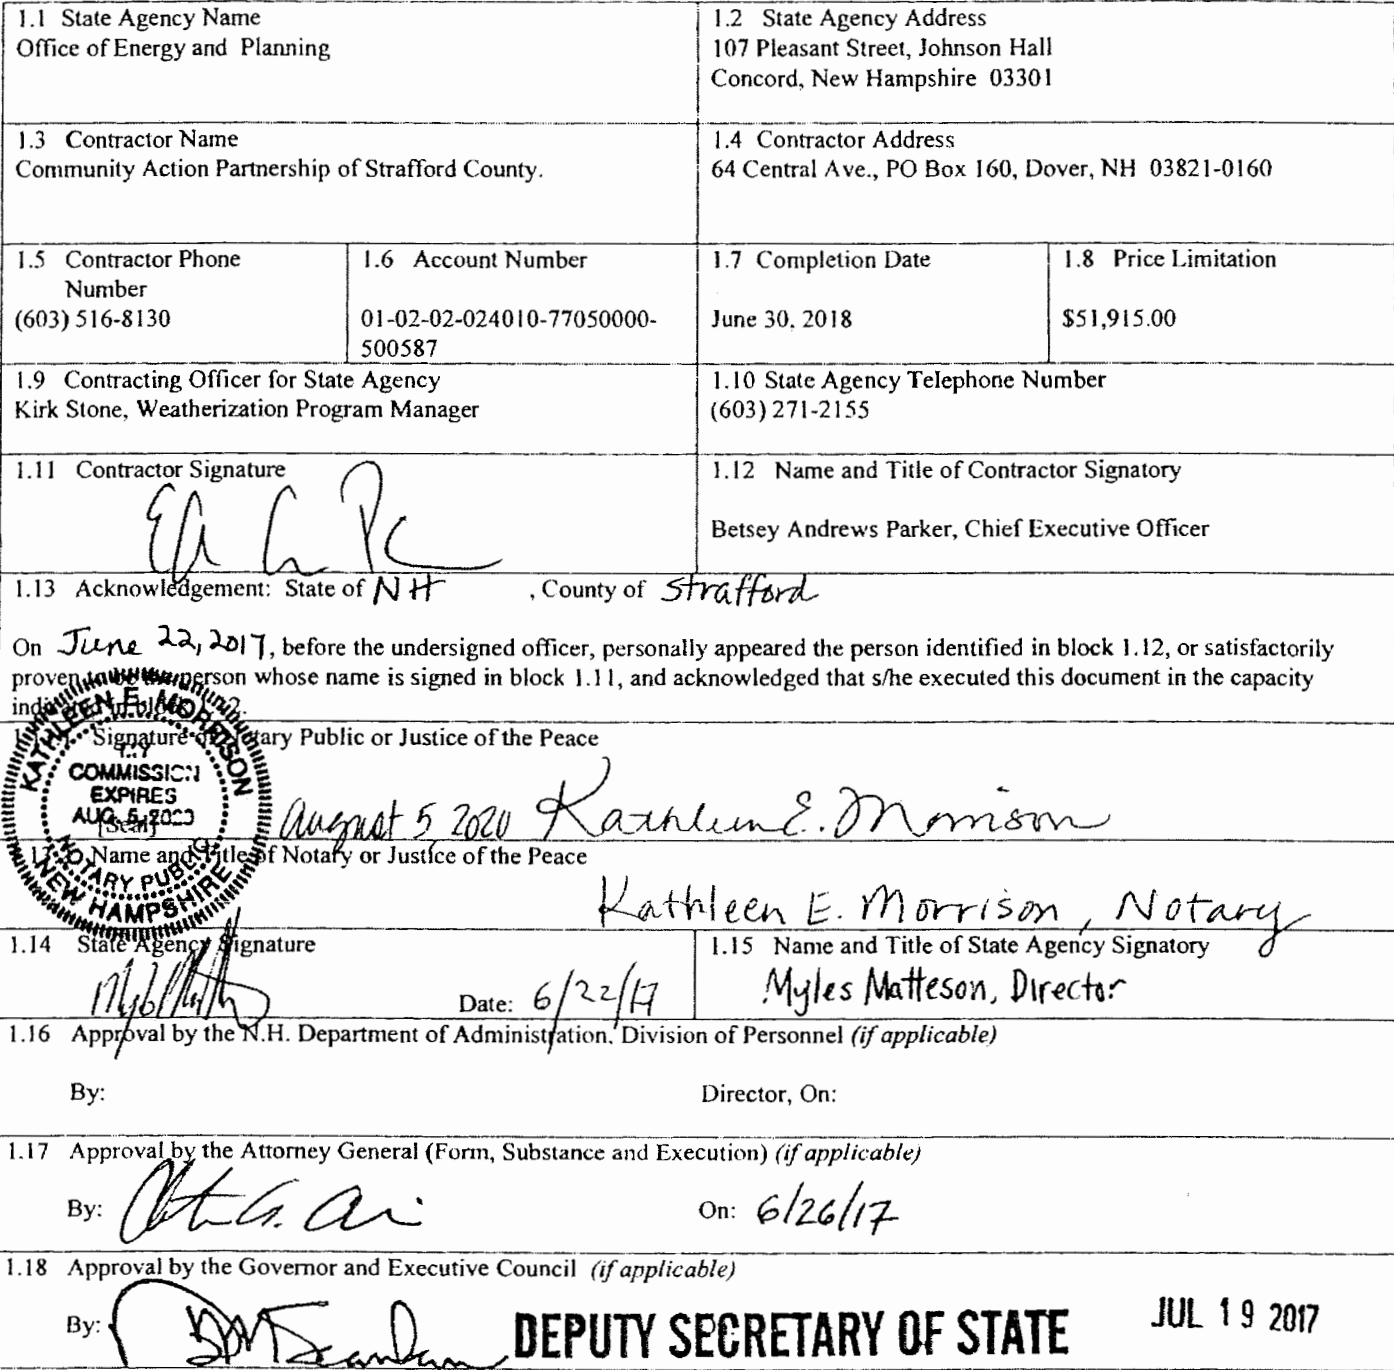 1.1 State Agency Name
Office of Energy and Planning
1.2 State Agency Address
107 Pleasant Street, Johnson Hall
Concord, New Hampshire 03301
1.3 Contractor Name
Community Action Partnership of Strafford County.
1.4 Contractor Address
64 Central Ave., PO Box 160, Dover, NH 03821-0160
1.5 Contractor Phone
Number
(603) 516-8130
1.6 Account Number
01-02-02-024010-77050000-
500587
1.7 Completion Date
June 30, 2018
1.8 Price Limitation
$51,915.00
1.9 Contracting Officer for State Agency
Kirk Stone, Weatherization Program Manager
1.10 State Agency Telephone Number
(603) 271-2155
1.11 Contractor Signature
1.12 Name and Title of Contractor Signatory
Betsey Andrews Parker, Chief Executive Officer
1.13 Acknowledgement: State of NH , County of Strafford
On June 22, 2017, before the undersigned officer, personally appeared the person identified in block 1.12, or satisfactorily
proven to be the person whose name is signed in block 1.11, and acknowledged that s/he executed this document in the capacity
indicated in block 1.12.
Signature of Notary Public or Justice of the Peace
KATHLEEN E. MORRISON
MY
COMMISSION
EXPIRES
AUG. 5, 2020
[Seal]
NOTARY PUBLIC
NEW HAMPSHIRE
August 5 2020 Kathleen E. Morrison
Name and Title of Notary or Justice of the Peace
Kathleen E. Morrison, Notary
1.14 State Agency Signature
Date: 6/22/17
1.15 Name and Title of State Agency Signatory
Myles Matteson, Director
1.16 Approval by the N.H. Department of Administration, Division of Personnel (if applicable)
By:
Director, On:
1.17 Approval by the Attorney General (Form, Substance and Execution) (if applicable)
By:
On: 6/26/17
1.18 Approval by the Governor and Executive Council (if applicable)
By:
DEPUTY SECRETARY OF STATE
JUL 19 2017